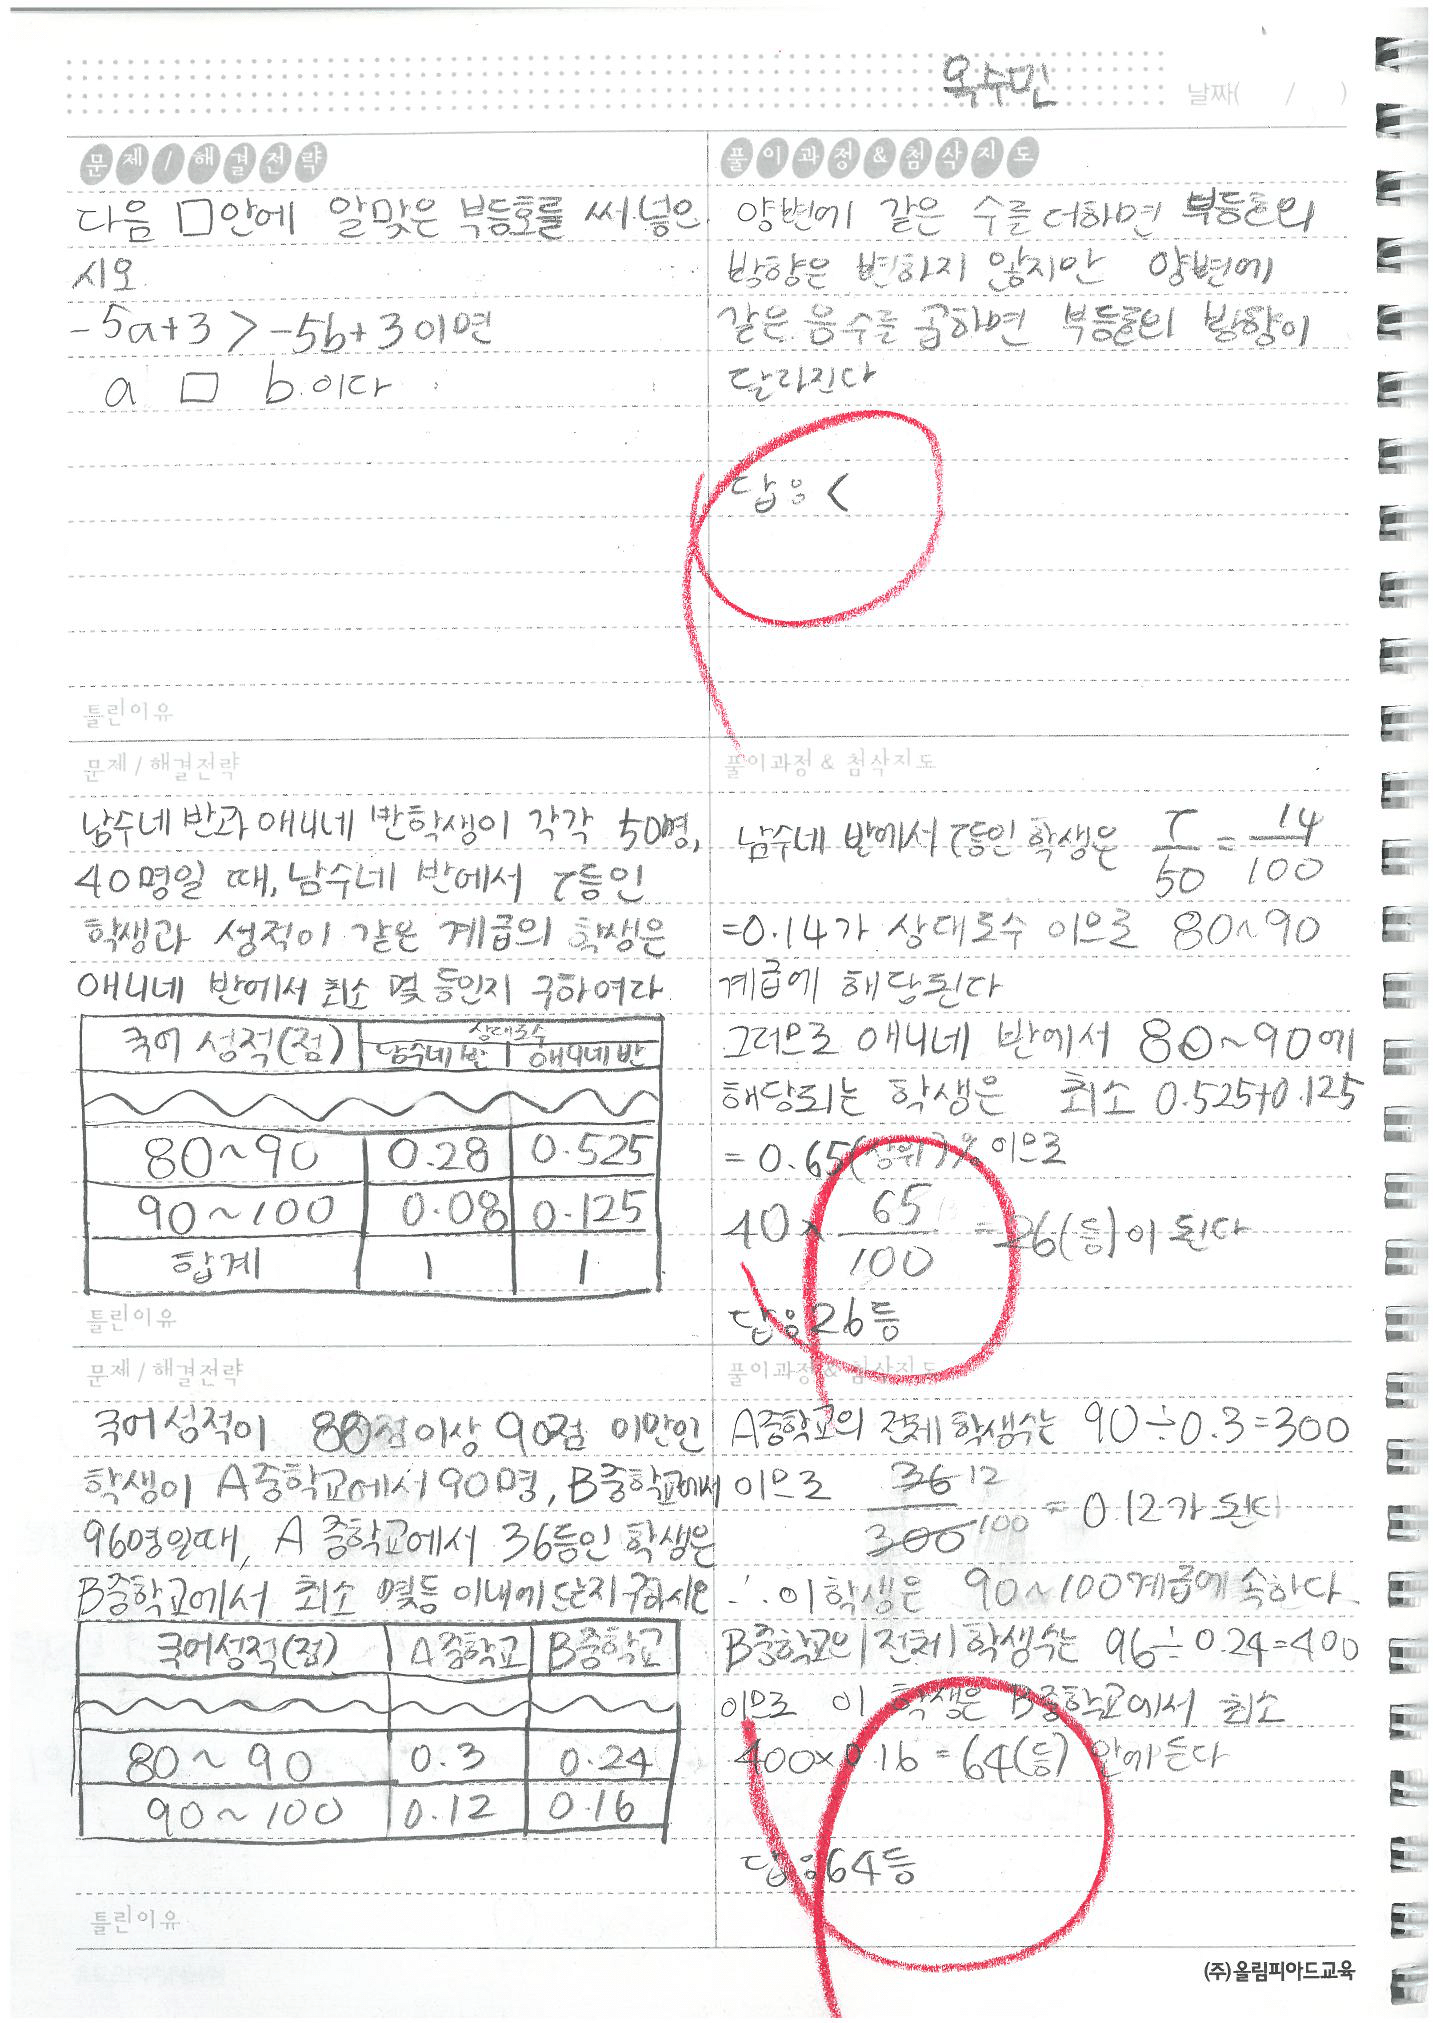 옥수민
날짜( / )
문제/해결전략
다음 □안에 알맞은 부등호를 써넣으
시오
-5a+3 > -5b+3이면
a □ b이다
틀린이유
풀이과정&첨삭지도
양변에 같은 수를 더하면 부등호의
방향은 변하지 않지만 양변에
같은 음수를 곱하면 부등호의 방향이
달라진다
답: <
문제/해결전략
남수네 반과 애니네 반학생이 각각 50명,
40명일 때, 남수네 반에서 7등인
학생과 성적이 같은 계급의 학생은
애니네 반에서 최소 몇 등인지 구하여라
국어 성적(점) 상대도수
남수네 반 애니네 반
80~90 0.28 0.525
90~100 0.08 0.125
합계 1 1
틀린이유
풀이과정 & 첨삭지도
남수네 반에서 7등인 학생은 7/50 = 14/100
=0.14가 상대도수 이므로 80~90
계급에 해당된다
그러므로 애니네 반에서 80~90에
해당되는 학생은 최소 0.525+0.125
= 0.65(상위)% 이므로
40 × 65/100 = 26(등)이 된다
답: 26등
문제/해결전략
국어성적이 80점이상 90점 미만인
학생이 A중학교에서 90명, B중학교에서
96명일때, A중학교에서 36등인 학생은
B중학교에서 최소 몇등 이내에 드는지 구하시오
국어성적(점) A중학교 B중학교
80~90 0.3 0.24
90~100 0.12 0.16
틀린이유
풀이과정 & 첨삭지도
A중학교의 전체 학생수는 90÷0.3=300
이므로 36 12/300 100 = 0.12가 된다
∴ 이학생은 90~100계급에 속하다
B중학교의 전체 학생수는 96÷0.24=400
이므로 이 학생은 B중학교에서 최소
400×0.16=64(등) 안에 든다
답: 64등
(주)올림피아드교육